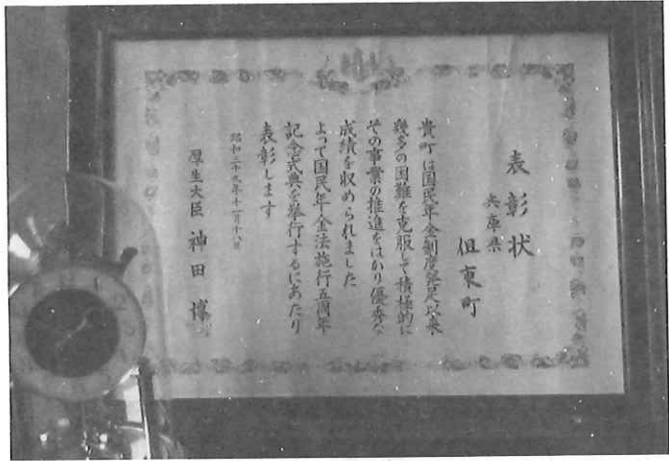 表彰状
兵庫県
但東町
貴町は国民年金制度発足以来
幾多の困難を克服して積極的に
その事業の推進をはかり優秀な
成績を収められました
よって国民年金法施行五周年
記念式典を挙行するにあたり
表彰します
昭和三十九年十一月十八日
厚生大臣 神田 博